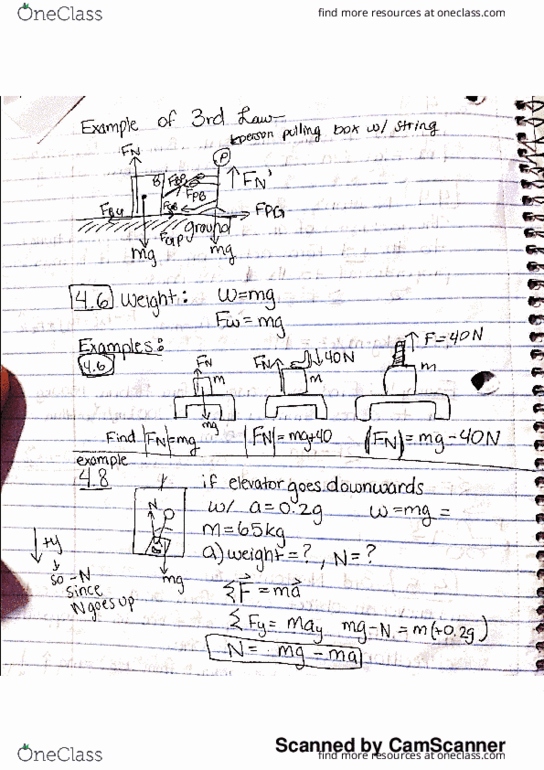 OneClass
find more resources at oneclass.com
Example of 3rd Law-
person pulling box w/ string
FN
P
B
FN'
FPB
FPG
ground
mg
mg
4.6 Weight: W=mg
Fw=mg
Examples:
4.6
FN
m
mg
FN
40N
m
F=40N
m
Find |FN|=mg
|FN|=mg+40
|FN|=mg-40N
example
4.8
if elevator goes downwards
w/ a=0.2g w=mg=
m=65kg
a) weight=?, N=?
N
mg
+y
so -N
since
N goes up
ΣF=ma
ΣFy=may mg-N=m(+0.2g)
N= mg-ma
Scanned by CamScanner
OneClass
find more resources at oneclass.com